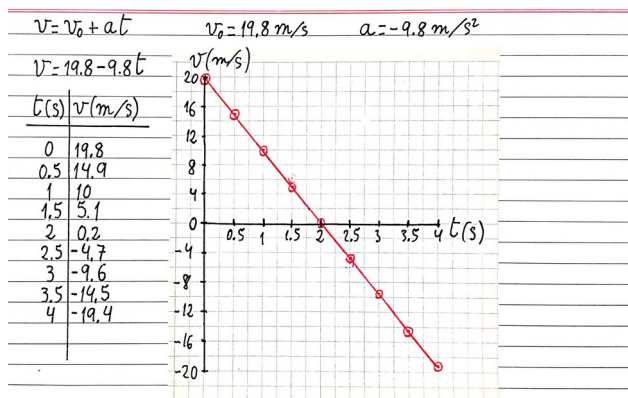 v=v₀+at v₀=19.8 m/s a=-9.8 m/s²
v=19.8-9.8t
t(s) v(m/s)
0 19.8
0.5 14.9
1 10
1,5 5.1
2 0.2
2.5 -4,7
3 -9.6
3.5 -14,5
4 -19.4
v(m/s)
20
16
12
8
4
0
-4
-8
-12
-16
-20
0.5 1 1.5 2 2.5 3 3.5 4 t(s)